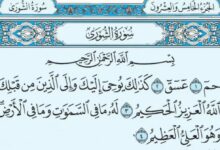 الجزء الخامس والعشرون سورة الشورى
سُورَةُ الشُّورَىٰ
بِسْمِ اللَّهِ الرَّحْمَٰنِ الرَّحِيمِ
حمٓ ١ عٓسٓقٓ ٢ كَذَٰلِكَ يُوحِىٓ إِلَيْكَ وَإِلَى الَّذِينَ مِن قَبْلِكَ
اللَّهُ الْعَزِيزُ الْحَكِيمُ ٣ لَهُۥ مَا فِى السَّمَٰوَٰتِ وَمَا فِى الْأَرْضِ
وَهُوَ الْعَلِىُّ الْعَظِيمُ ٤